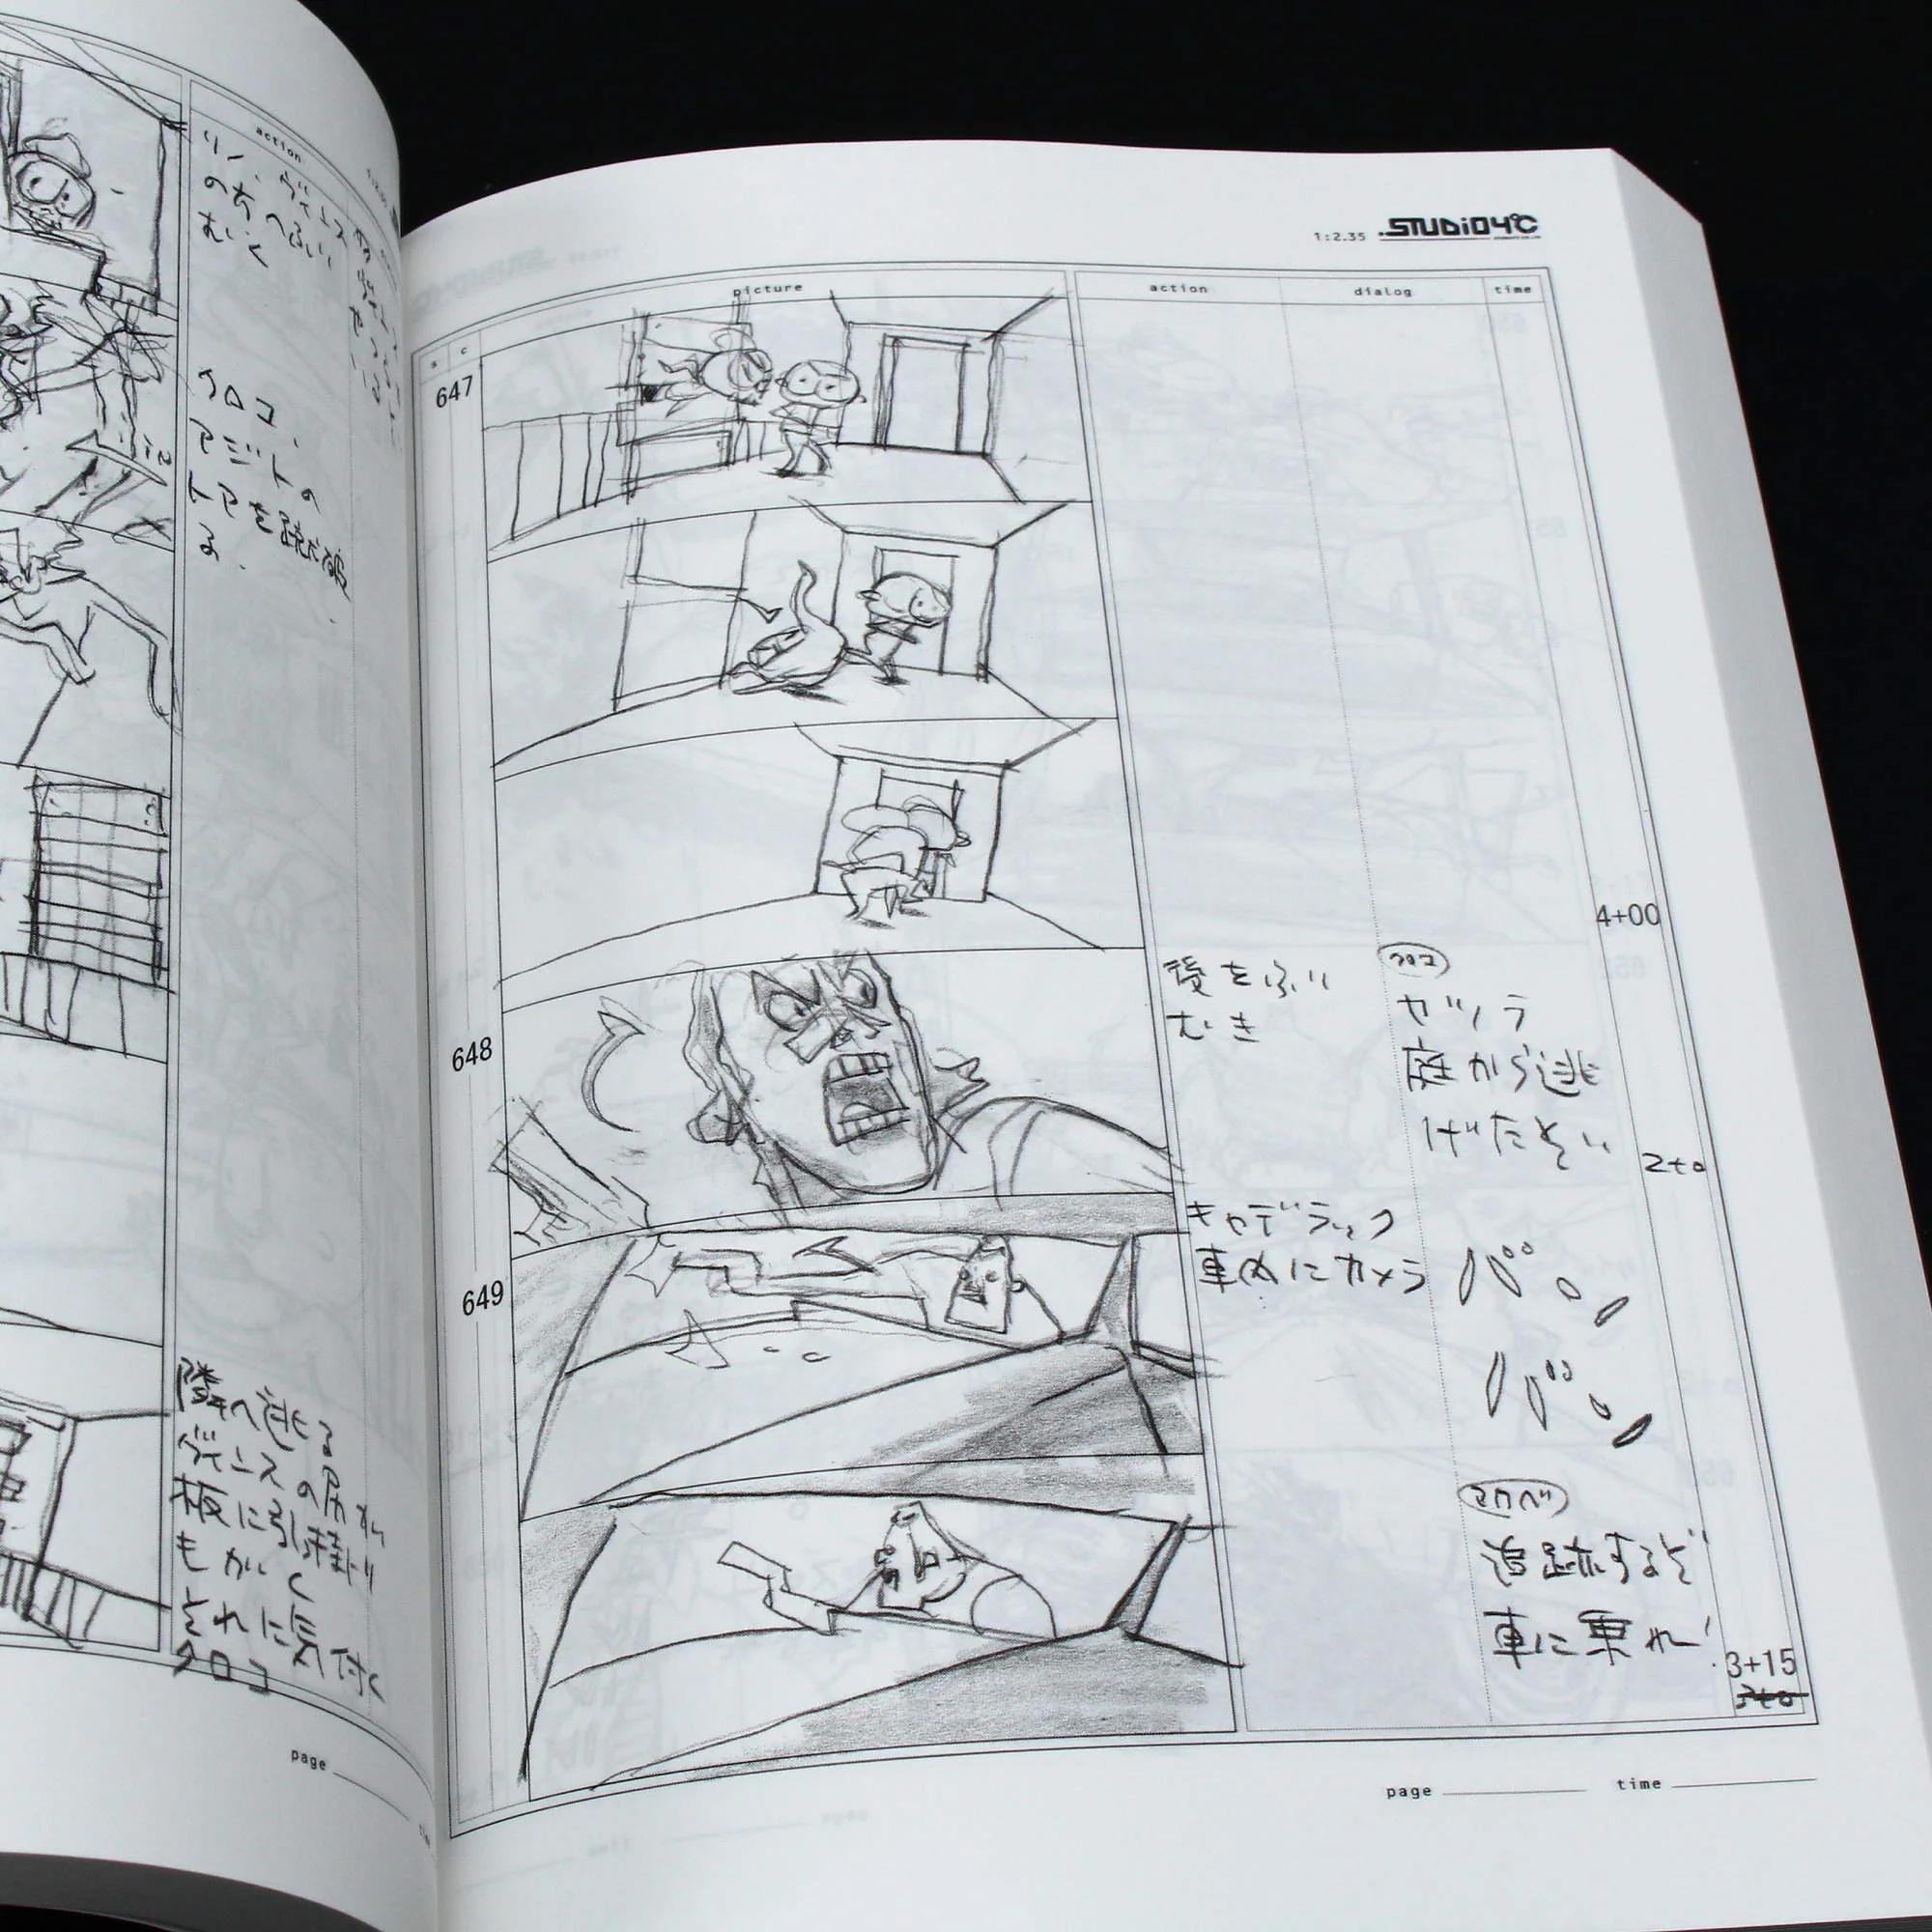 action
リン、ヴィンス
の方へふり
むく
クロコ、
アジトの
ドアを蹴破
る.
隣へ逃る
ヴィンスの尻か
板に引掛り
もがく
それに気付く
クロコ
page
1:2.35 STUDiO4℃
picture action dialog time
s c
647
4+00
648
後をふり
むき
クロコ
ガノラ
庭から逃
げたぞい
2+0
649
キャデラック
車内にカメラ
バン
バン
マクベ
追跡するぞ
車に乗れ!
3+15
3+0
page time